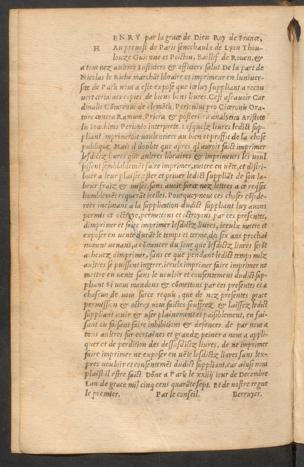 HENRY par la grace de Dieu Roy de France,
Au prevost de Paris seneschaulx de Lyon Thou-
louze Guienne et Poictou, Baillif de Rouen, &
a tous noz autres Iusticiers & officiers salut De la part de
Nicolas le Riche marchāt libraire et imprimeur en luniver-
site de Paris nous a este exposé que
vert certains copies de liures bons liures. Cest ascavoir Car
Perionij pro Ciceronis Orato-
re contra Ramum, Priora & posteriora analytica Aristote
lis Ioachimo Perionio interprete. lesquelz liures ledict sup-
pliant imprimeroit voulentiers au bien et proffit de la chose
publique. Mais il doubte que apres quil auroit faict imprimer
lesdictz liures que autres libraires & imprimeurs les vou-
sissent semblablement faire imprimer, mettre en vēte, et distri-
buer a leur plaisir, & priver ledict suppliāt de son la-
beur fraiz & mises, sans avoir sur ce noz lettres a ce
humblemēt requerāt icelles. Pourquoy nous ces choses cōside-
rees inclinant a la supplication dudict suppliant luy avons
permis et octroyé, permettons et octroyons par ces presentes,
dimprimer et faire imprimer lesdictz liures, iceulx mettre et
exposer en vente durāt le temps et terme de six ans prochai-
nement venans, a cōmencer du iour que lesdictz liures serōt
achevez dimprimer, sans ce que pendant ledict temps nulz
autres se puissent ingerer, iceulx imprimer faire imprimer ne
mettre en vente sans le vouloir et consentement dudict sup-
pliant Si vous mandons & cōmettons par ces presentes et a
chascun de vous sur ce requis, que de noz presentes grace
permission & octroy vous faictes souffrez & laissez ledict
suppliant iouir & user plainement et paisiblement, en fai-
sant ou faisant faire inhibitions & defences de par nous a
tous autres sur certaines et grandz peines a nous a appli-
quer et de perdition des dessusdictz liures, de ne imprimer
faire imprimer ne exposer en vēte lesdictz liures sans lex-
pres vouloir et consentemēt dudict suppliant, car ainsi nous
plaist il estre faict. Dōné a Paris le xxiiij iour de Decembre
Lan de grace mil cinq cens quarāte sept. Et de nostre regne
le premier. Par le conseil. Berruyer.